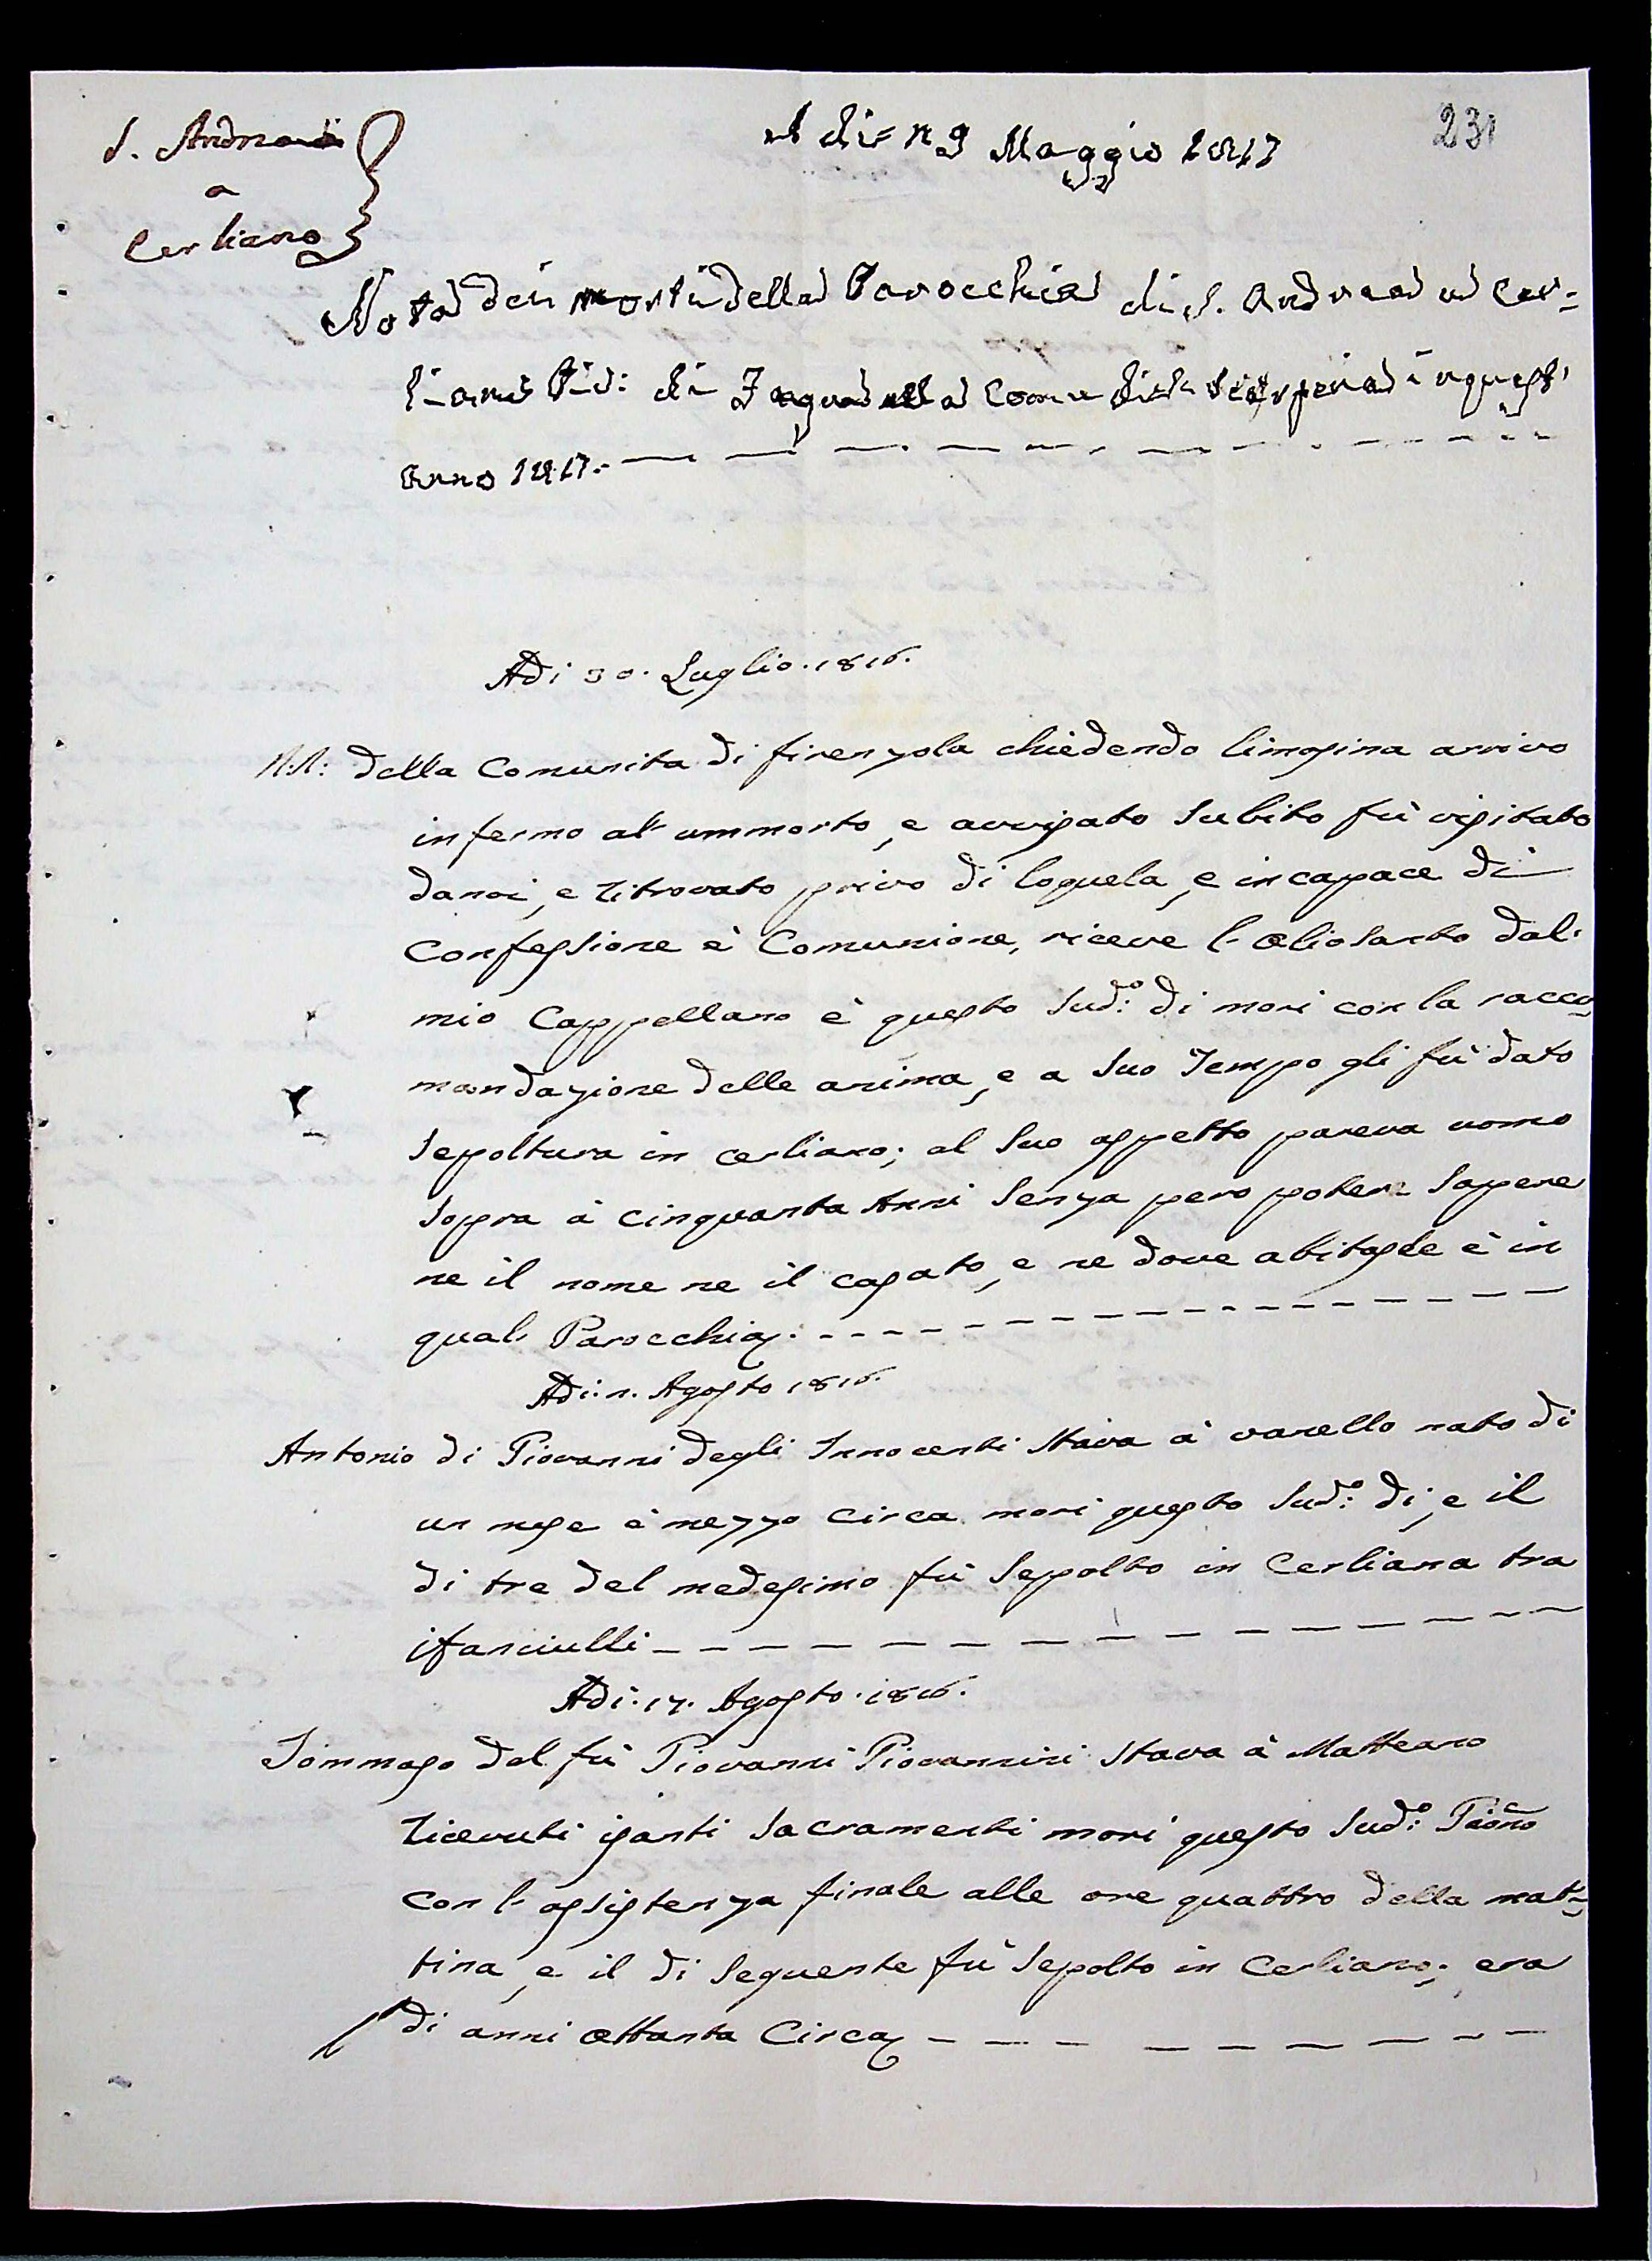 S. Andrea
a
Cerliano
231
A di 19 Maggio 1817
Nota dei morti della Parocchia di S. Andrea a Cer=
liano di Comu in quest'
anno 1817.
Adi 30. Luglio. 1816.
N.N: della Comunita di firenzola chiedendo limosina arrivo
infermo a un morto, e avvisato subito fù visitato
danoi, e ritrovato privo di loquela, e incapace di
confessione è Comunione, riceve l-oliosanto dal.
mio Cappellano è questo Sud:º di mori con la racco=
mandazione delle anima, e a suo Tempo gli fù dato
Sepoltura in cerliano; al suo aspetto pareva uomo
sopra à cinquanta Anni senza pero potere sapere
ne il nome ne il casato, e ne dove abitasse è in
qual. Parocchia.
Adi: 1. Agosto 1816.
Antonio di Giovanni degli Innocenti Stava à vanello nato di
un mese è mezzo circa mori questo Sud:º di, e il
di tre del medesimo fù Seppolto in Cerliana tra
ifanciulli
Adi: 17. Agosto. 1816.
Tommaso del fù Giovanni Giovannini Stava à Matteano
ricevuti isanti Sacramenti mori questo Sud:º Giorno
con l-assistenza finale alle ore quattro della mat=
tina, e il di Seguente fù Sepolto in Cerliano; era
di anni ottanta Circa